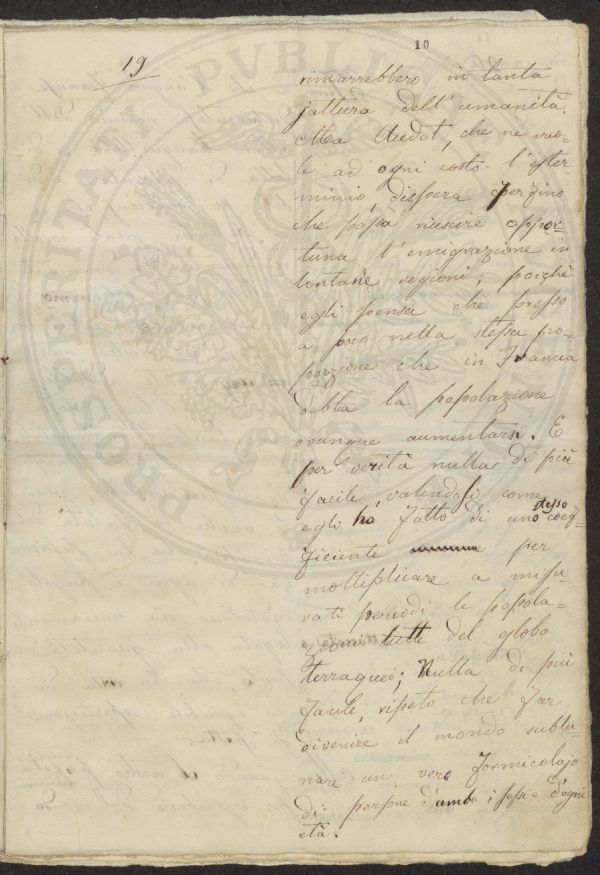 10
19
rimarrebbero in tanta
jattura dell'umanità.
Ma Audot, che ne vuo-
le ad ogni costo l'ester-
minio, dispera perfino
che possa riuscire oppor-
tuna l'emigrazione in
lontane regioni; poichè
egli pensa che presso
a poco nella stessa pro-
porzione che in Francia
debba la popolazione
ovunque aumentarsi. E
per verità nulla di più
facile, valendosi come
egli ha fatto di uno stesso coef-
ficiente per
moltiplicare a misu-
rati periodi le popola-
zioni tutte del globo
terraqueo; Nulla di più
facile, ripeto, che far
divenire il mondo sublu-
nare un vero formicolajo
di persone d'ambo i sessi e d'ogni
età.
PROSPERITATI PUBLIC